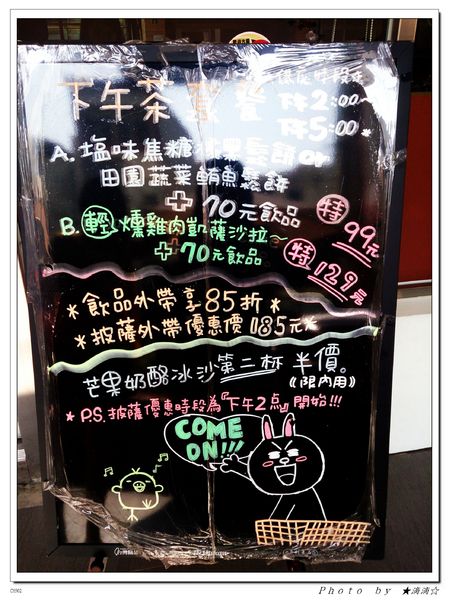 下午茶套餐
優惠時段在
下午2:00~
下午5:00*
A.塩味焦糖蘋果鬆餅or
田園蔬菜鮪魚鬆餅
+70元飲品
特 99元
B.輕燻雞肉凱薩沙拉~
+70元飲品
特 129元
*飲品外帶享85折*
*披薩外帶優惠價185元*
芒果奶酪冰沙第二杯半價。
《限內用》
*P.S.披薩優惠時段為『下午2点』開始!!!
COME
ON!!!
Photo by ★滴滴☆